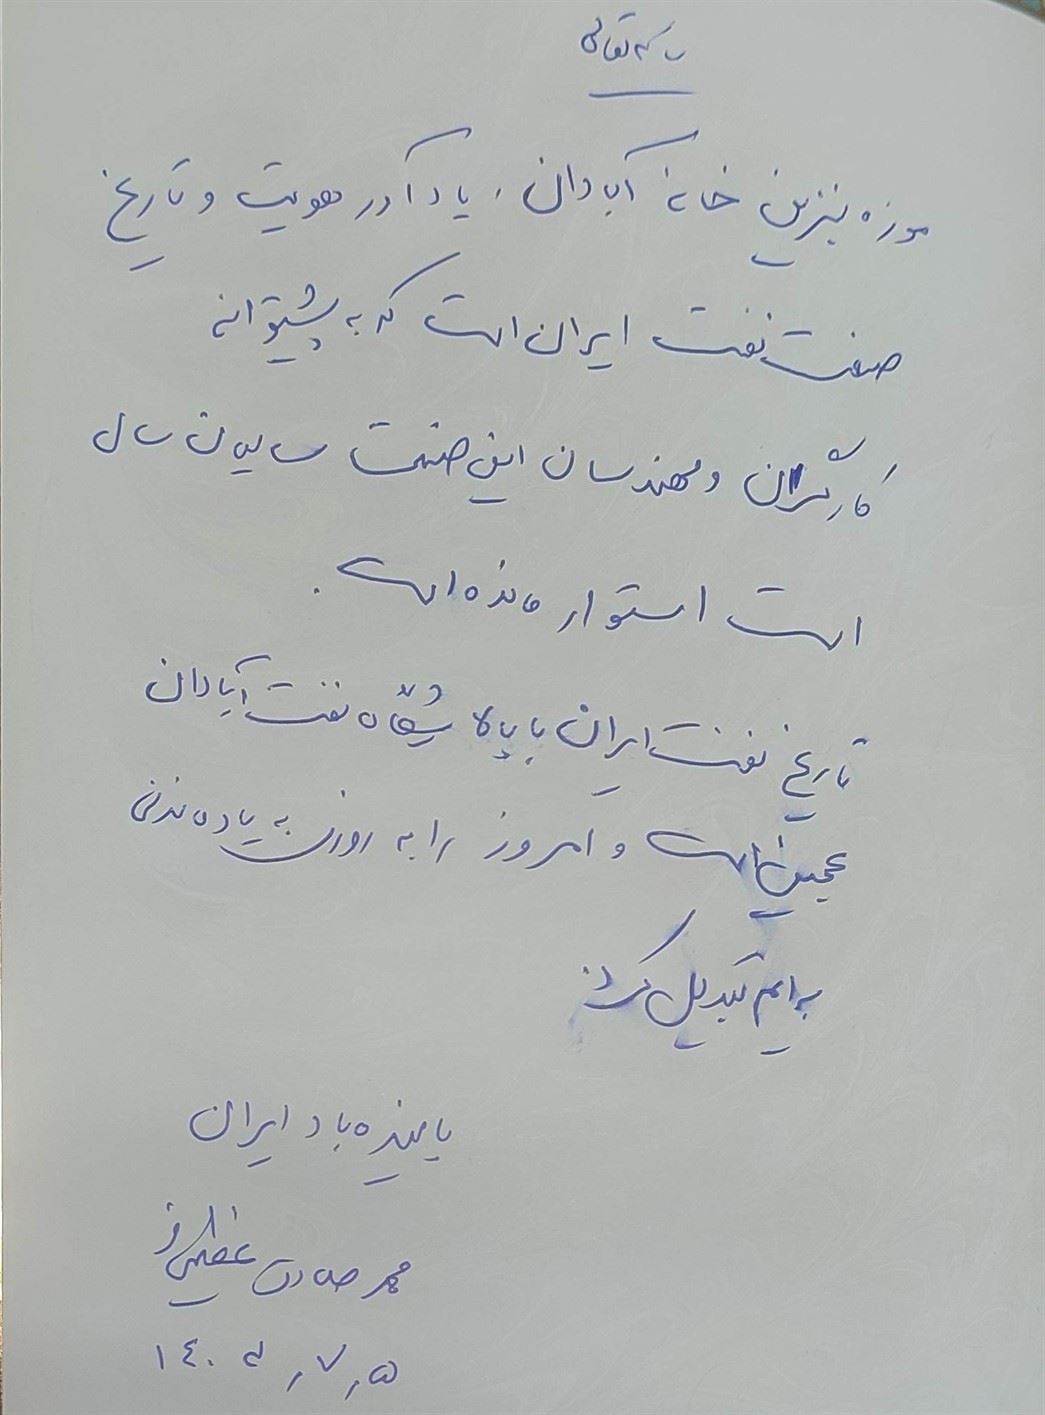 باسمه تعالی
موزه بنزین خانه آبادان، یادآور هویت و تاریخ
صنعت نفت ایران است که به پشتوانه
کارگران و مهندسان این صنعت سالیان سال
است استوار مانده است.
تاریخ نفت ایران با پالایشگاه نفت آبادان
عجین است و امروز را به روزی به یاد ماندنی
برایم تبدیل کرد.
پاینده باد ایران
محمد صادق عظیمی‌فر
۱۴۰۴,۷,۵